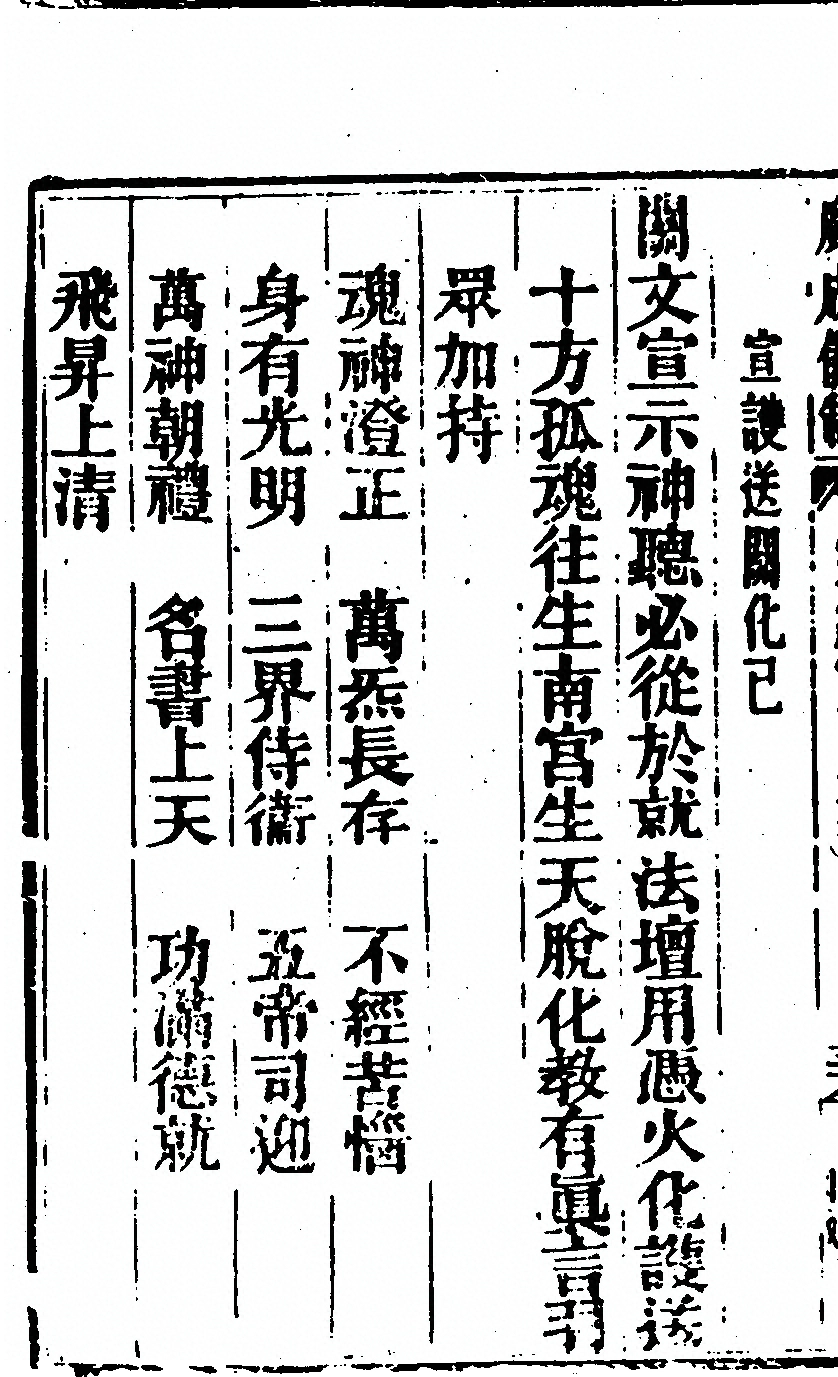 宣護送關化已
關文宣示神聽必從於就法壇用憑火化護送
十方孤魂往生南宮生天脫化教有眞言謹
眾加持
魂神澄正　萬炁長存　不經苦惱
身有光明　三界侍衞　五帝司迎
萬神朝禮　名書上天　功滿德就
飛昇上清